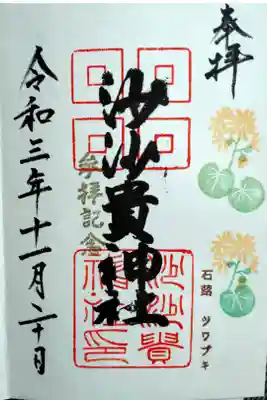 奉拝
沙沙貴神社
参拝記念
令和三年十一月二十日
石蕗 ツワブキ